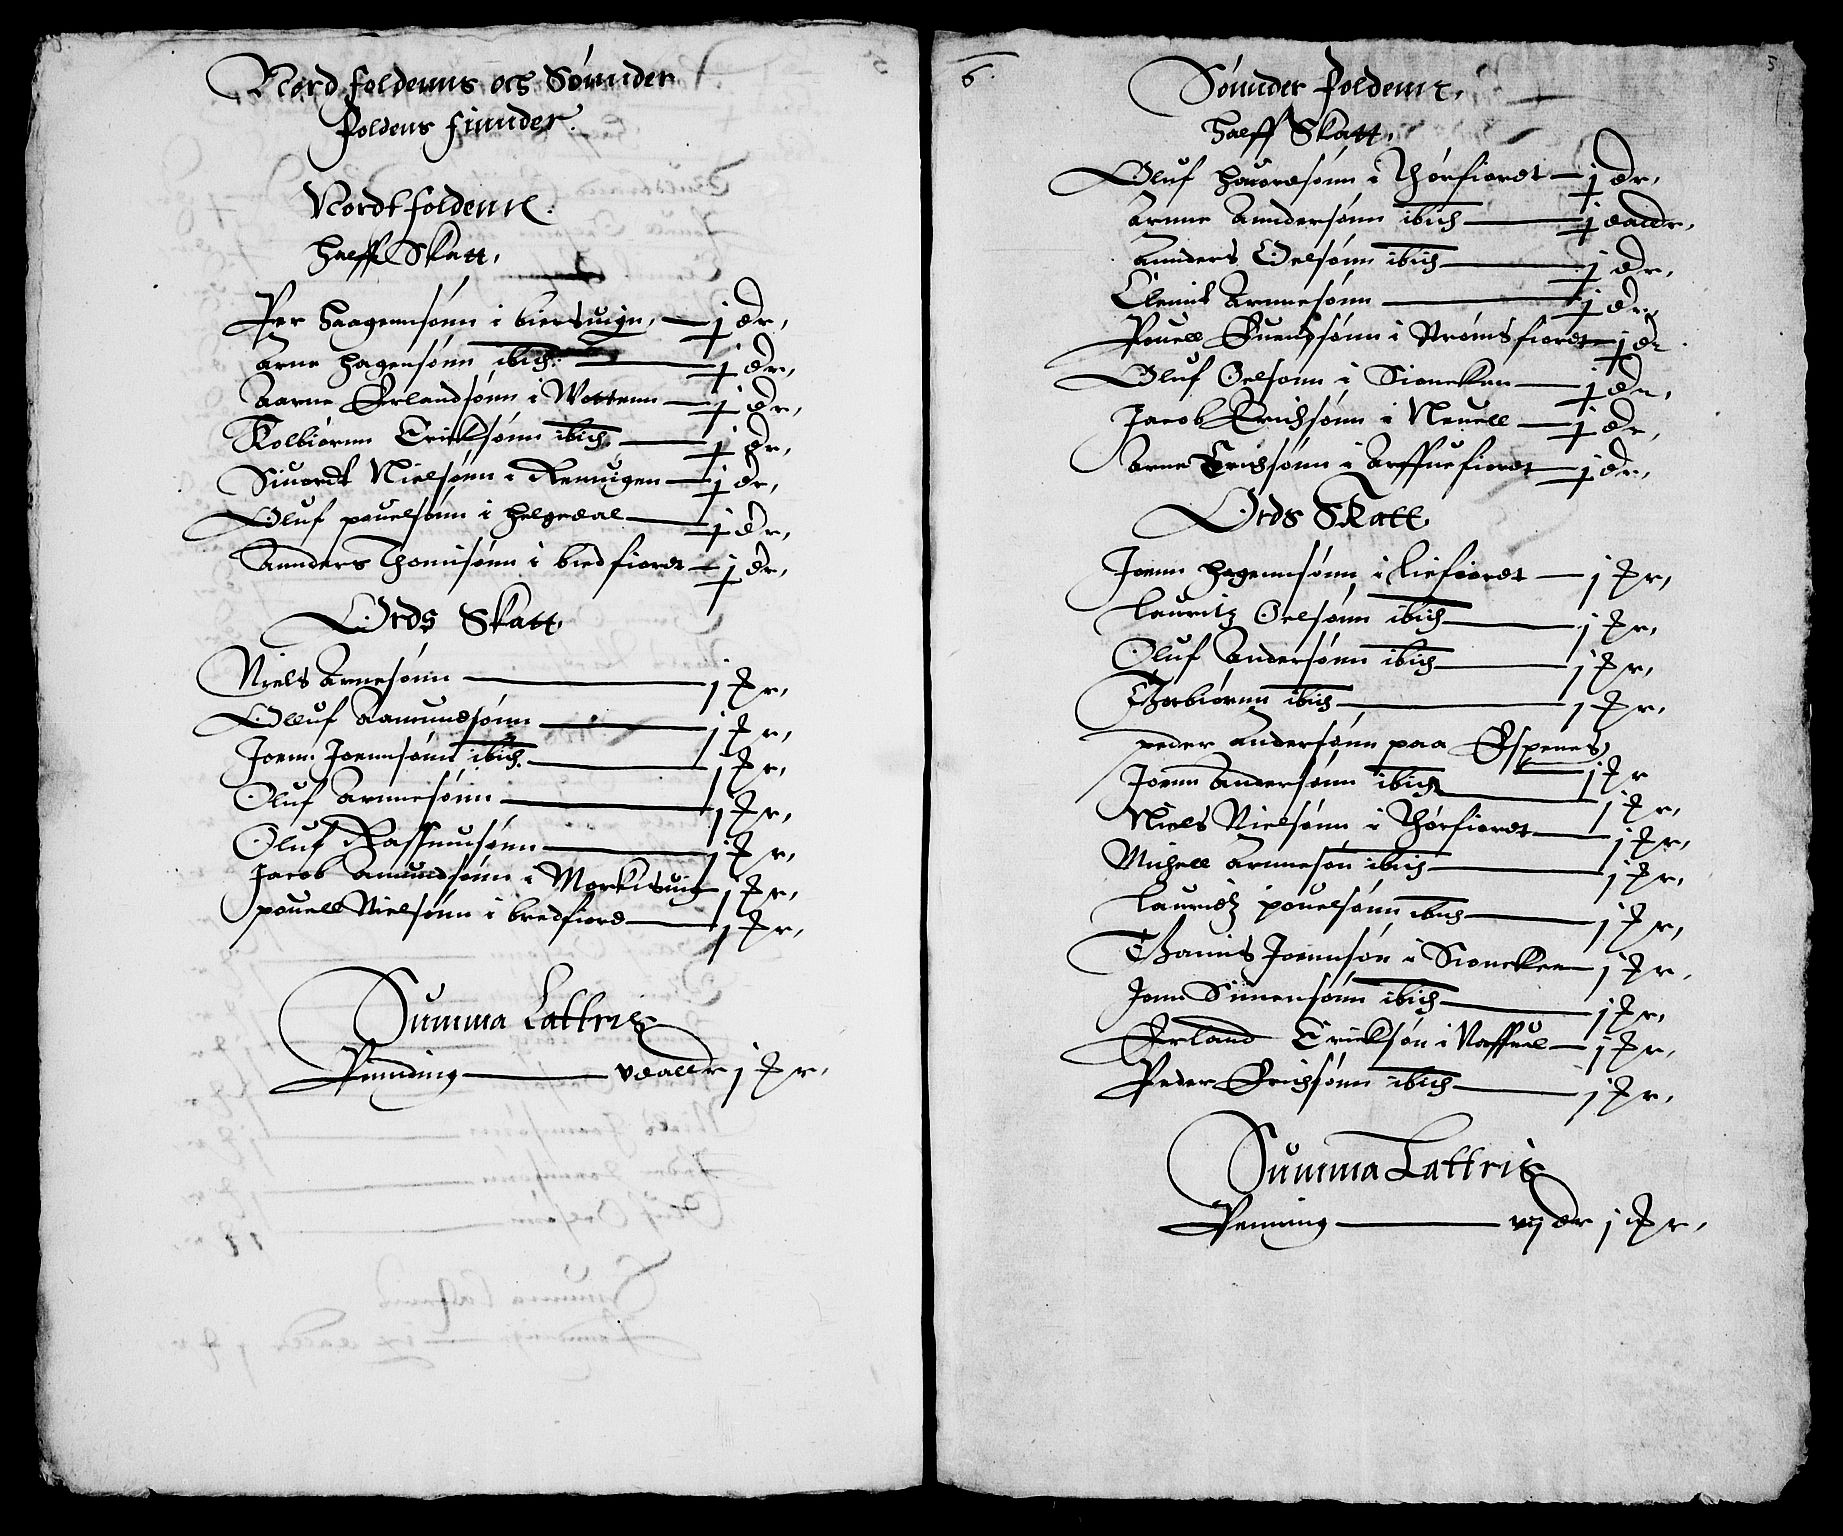 Nord foldenns och Sønnder
foldens finnder.
Nordtfoldenn.
Halff Skatt,
Per Haagennsønn i biersuign, — j dr,
Arne Hagensønn ibid: — j dr,
Aarne Erlandsønn i Wottenn — j dr,
Kolbiørnn Ericksønn ibid — j dr,
Siuerdt Nielsønn i — j dr,
Oluf pouelsønn i Helgedal — j dr,
Annders Thomisønn i bredfiordt — j dr,
Ords Skatt
Niels Arnesønn — j Jr,
Olluf Aamundsønn — j Jr,
Joenn Joennsønn ibid. — j Jr,
Oluf Arnnesønn — j Jr,
Oluf Rassmusønn — j Jr,
Jacob Amundsønn i Morkisuig j Jr,
pouell Nielsønn i bredfiord — j Jr,
Summa Lattris
Penninng — v dallr j Jr,
6.
5
Sønnder foldenn,
Halff Skatt,
Oluf Hauordsønn i Thørfiordt — j dr,
Arnne Anndersønn ibid — j dalldr,
Annders Oelsønn ibid — j dr,
Clemit Arnnesønn — j dr,
Pouell Suendsønn i Strømsfiordt — j dr.
Oluf Oelsønn i Sioncken — j dr,
Jacob Erichsønn i Neuell — j dr,
Arne Erichsønn i Arffuefiordt — j dr,
Ords Skatt,
Joenn Hagennsønn i Liefiordt — j Jr,
Lauritz Oelsønn ibid — j Jr,
Oluf Andersønn ibid — j Jr,
Thorbiørnn ibid — j Jr,
peder Andersønn paa Espenes, j Jr
Joenn Andersønn ibid — j Jr,
Niels Nielsønn i Thørfiordt — j Jr,
Michell Arnnesøn ibid — j Jr,
Lauridz pouelsønn ibid — j Jr,
Thamis Joennsøn i Sioncken — j Jr,
Jonn Simensønn ibid — j Jr,
Erland Ericksøn i Naffuel — j Jr,
Peder Erichsønn ibid — j Jr,
Summa Lattris
Penning — vij dr j Jr,